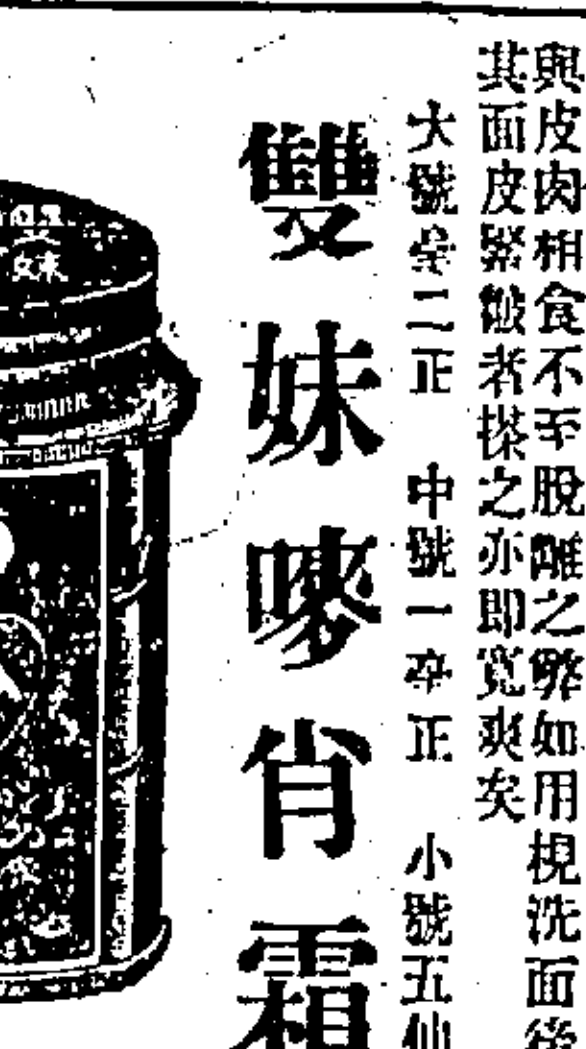 與皮肉相食不至脫離之弊如用梘洗面後
其面皮緊皺者搽之亦即寬爽矣
大號 二正 中號一 正 小號五仙
雙妹嘜肖霜